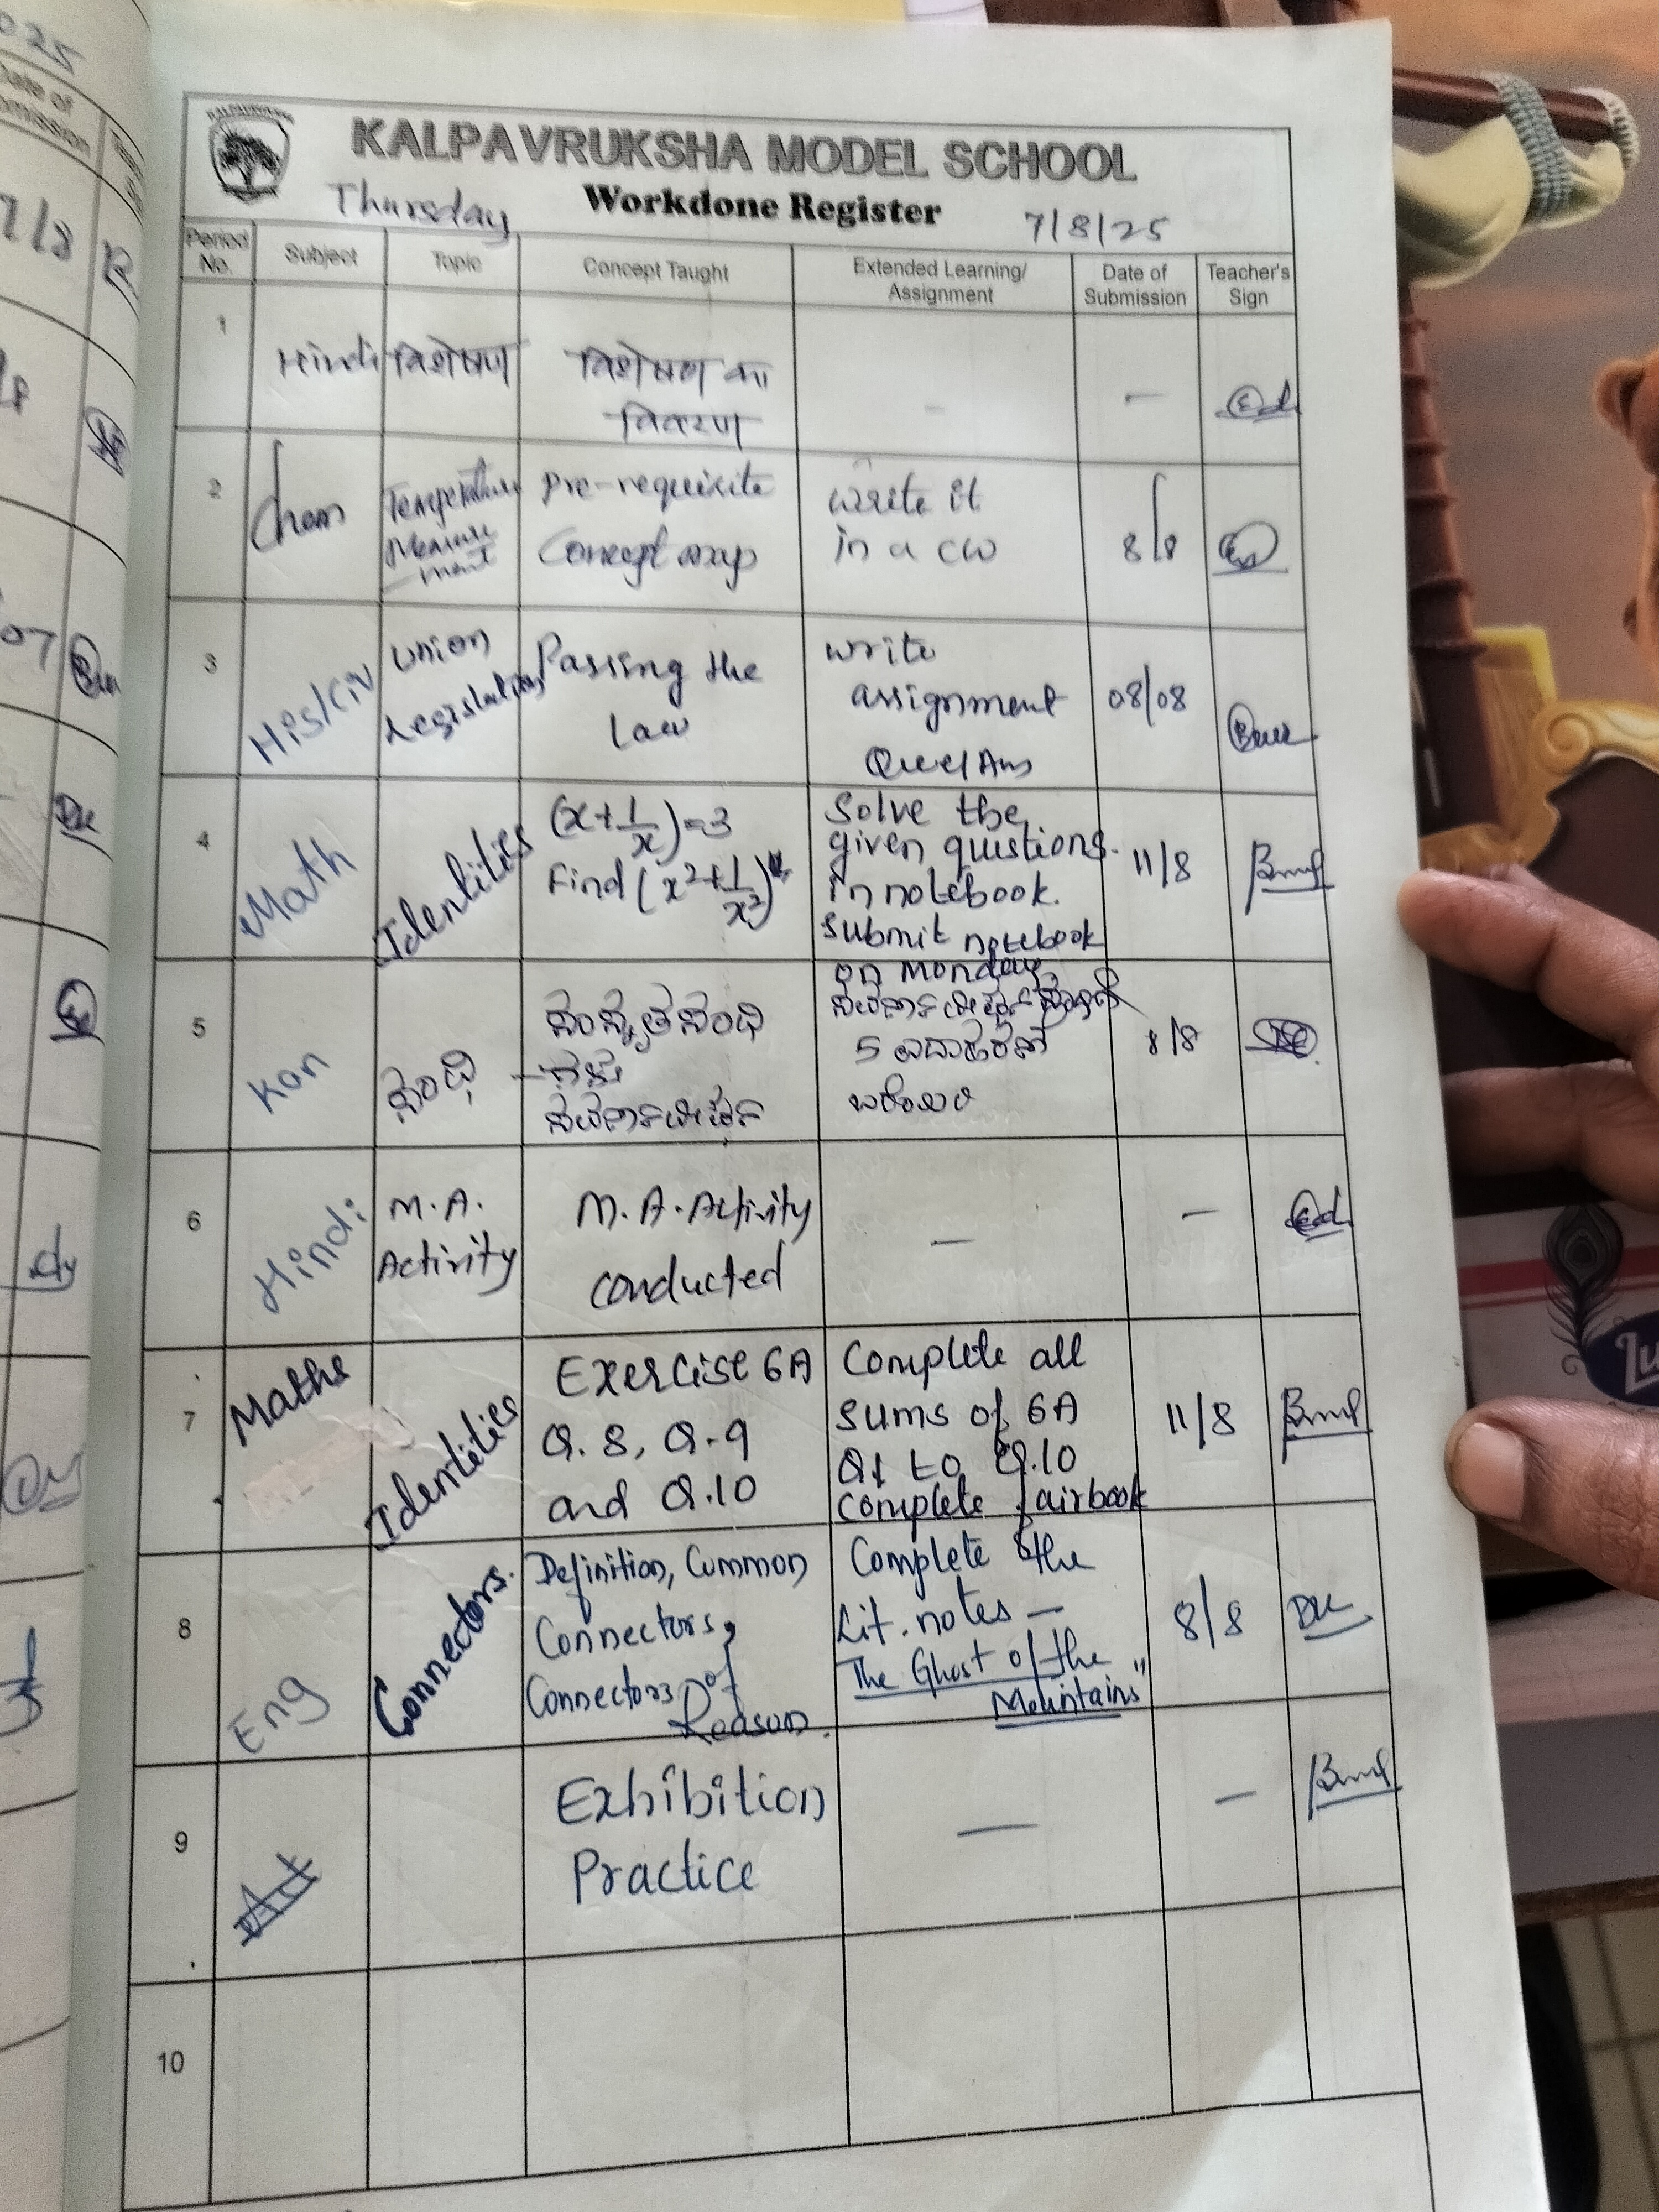 KALPAVRUKSHA MODEL SCHOOL
Thursday Workdone Register 7/8/25
Period No. Subject Topic Concept Taught Extended Learning/ Assignment Date of Submission Teacher's Sign
1 Hindi विशेषण विशेषण का
विवरण
- -
2 Chem Temperature
Measure
-ment
Pre-requisite
Concept map
Write it
in a CW
8/8
3 His/Civ Union
Legislature
Passing the
Law
Write
assignment
Que/Ans
08/08
4 Math Identities
(x+1/x)=3
Find (x²+1/x²)
Solve the
given quistions.
in notebook.
Submit notebook
on Monday
11/8
5 Kan ಸಂಧಿ
ಸಂಸ್ಕೃತ ಸಂಧಿ
ಸವರ್ಣದೀರ್ಘ
5 ಉದಾಹರಣೆ
ಬರೆಯಿರಿ
8/8
6 Hindi M.A.
Activity
M.A. Activity
conducted
- -
7 Maths Identities
Exercise 6A
Q. 8, Q.9
and Q.10
Complete all
sums of 6A
Q1 to Q.10
complete fairbook
11/8
8 Eng Connectors.
Definition, Common
Connectors,
Connectors of
Reason.
Complete the
Lit. notes —
The Ghost of the
Mountains"
8/8
9
Exhibition
Practice
- -
10